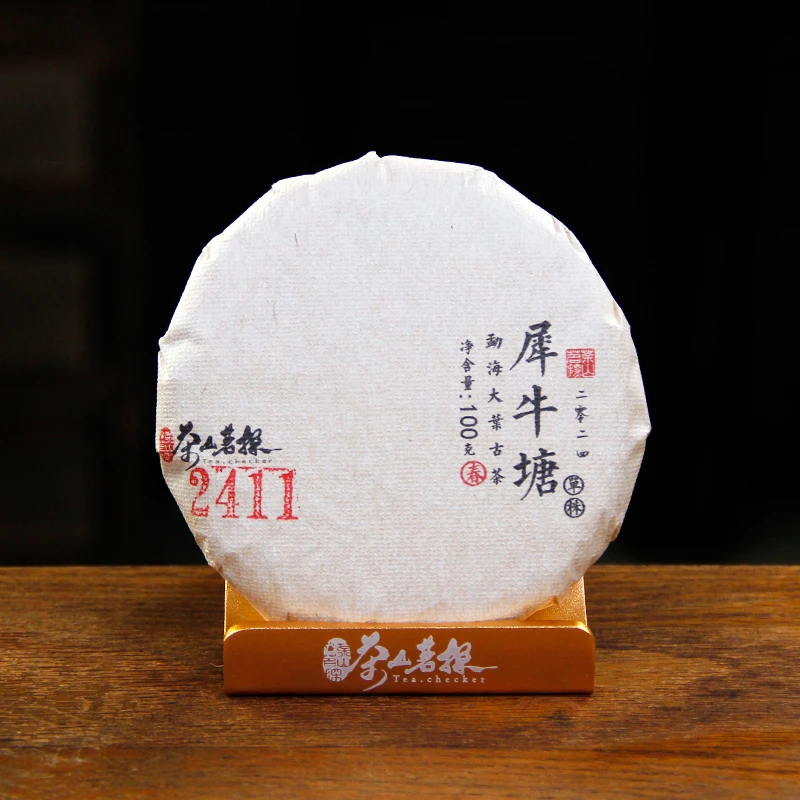 茶山
茗探
二零二四
單株
犀牛塘
勐海大葉古茶
净含量：100克
春
茶山茗探
Tea.checker
2411
茶山茗探
Tea.checker